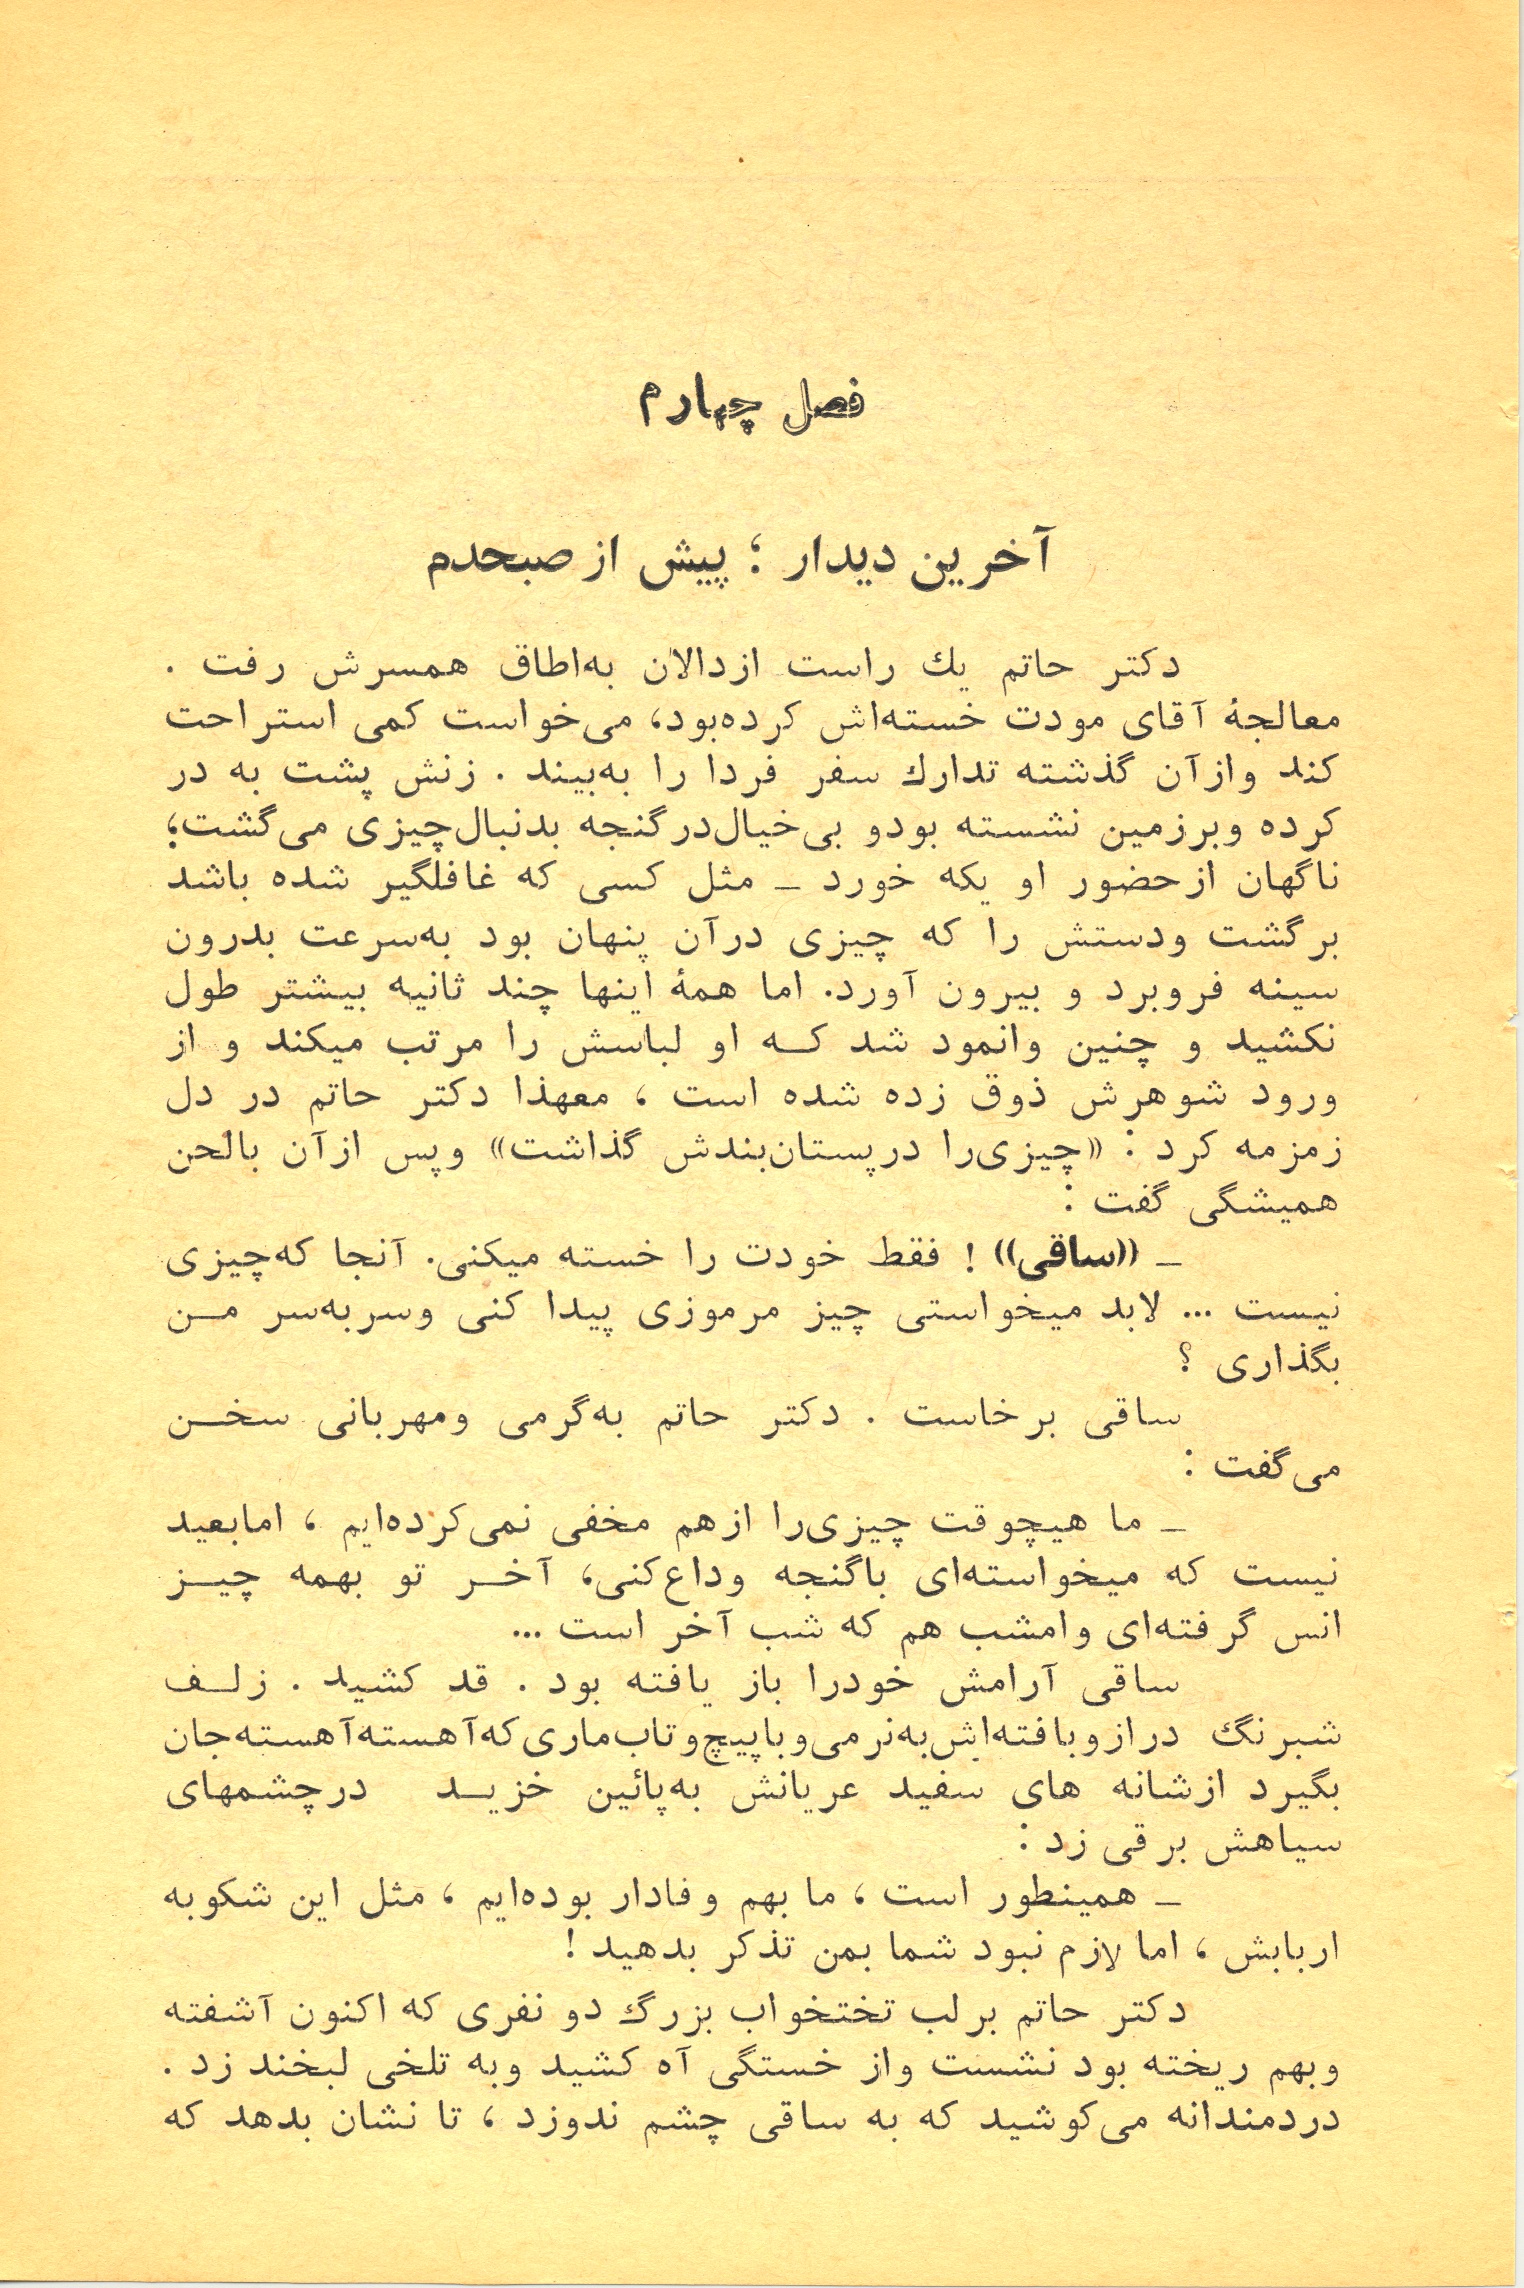 فصل چهارم
آخرین دیدار ؛ پیش از صبحدم
دکتر حاتم یك راست ازدالان به‌اطاق همسرش رفت .
معالجهٔ آقای مودت خسته‌اش کرده‌بود، می‌خواست کمی استراحت
کند وازآن گذشته تدارك سفر فردا را به‌بیند . زنش پشت به در
کرده وبرزمین نشسته بودو بی‌خیال‌درگنجه بدنبال‌چیزی می‌گشت؛
ناگهان ازحضور او یکه خورد ـ مثل کسی که غافلگیر شده باشد
برگشت ودستش را که چیزی درآن پنهان بود به‌سرعت بدرون
سینه فروبرد و بیرون آورد. اما همهٔ اینها چند ثانیه بیشتر طول
نکشید و چنین وانمود شد کـه او لباسش را مرتب میکند و از
ورود شوهرش ذوق زده شده است ، معهذا دکتر حاتم در دل
زمزمه کرد : «چیزی‌را درپستان‌بندش گذاشت» وپس ازآن بالحن
همیشگی گفت :
ـ ((ساقی)) ! فقط خودت را خسته میکنی. آنجا که‌چیزی
نیست ... لابد میخواستی چیز مرموزی پیدا کنی وسربه‌سر مـن
بگذاری ؟
ساقی برخاست . دکتر حاتم به‌گرمی ومهربانی سخـن
می‌گفت :
ـ ما هیچوقت چیزی‌را ازهم مخفی نمی‌کرده‌ایم ، امابعید
نیست که میخواسته‌ای باگنجه وداع‌کنی، آخـر تو بهمه چیـز
انس گرفته‌ای وامشب هم که شب آخر است ...
ساقی آرامش خودرا باز یافته بود . قد کشید . زلـف
شبرنگ درازوبافته‌اش‌به‌نرمی‌وباپیچ‌وتاب‌ماری‌که‌آهسته‌آهسته‌جان
بگیرد ازشانه های سفید عریانش به‌پائین خزیـد درچشمهای
سیاهش برقی زد :
ـ همینطور است ، ما بهم وفادار بوده‌ایم ، مثل این شکوبه
اربابش ، اما لازم نبود شما بمن تذکر بدهید !
دکتر حاتم برلب تختخواب بزرگ دو نفری که اکنون آشفته
وبهم ریخته بود نشست واز خستگی آه کشید وبه تلخی لبخند زد .
دردمندانه می‌کوشید که به ساقی چشم ندوزد ، تا نشان بدهد که